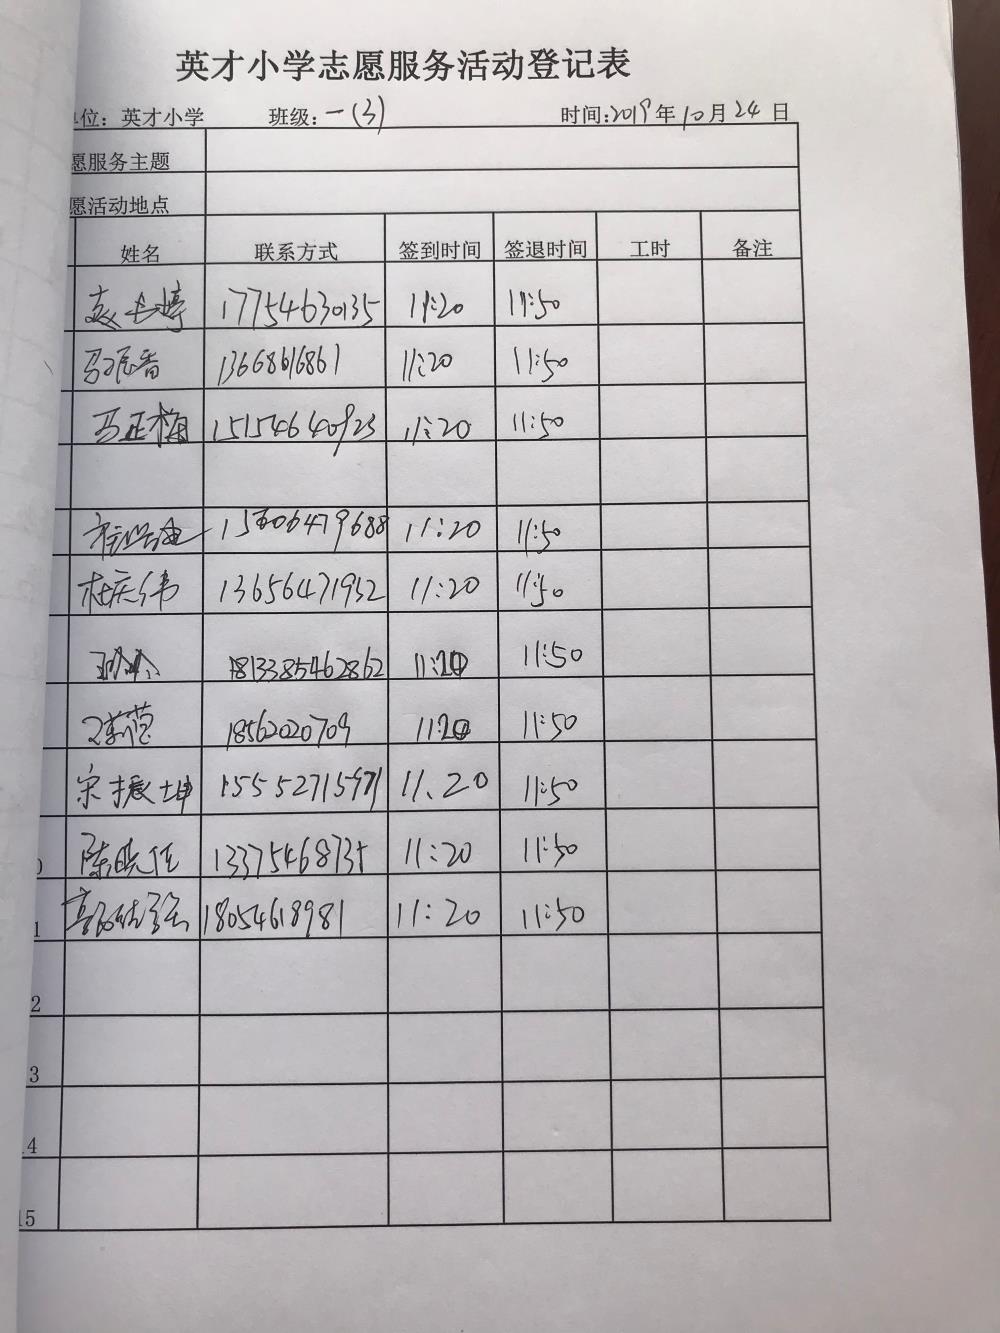 英才小学志愿服务活动登记表
位：英才小学 班级：一(3) 时间：2019年10月24日
愿服务主题
愿活动地点
姓名 联系方式 签到时间 签退时间 工时 备注
17754630135 11:20 11:50
13668616861 11:20 11:50
马正梅 15154640923 11:20 11:50
479688 11:20 11:50
杜庆伟 13656471952 11:20 11:50
11:20 11:50
18562020709 11:20 11:50
宋振坤 15552715971 11.20 11:50
陈晓任 13375468735 11:20 11:50
1 18054618981 11:20 11:50
2
3
4
15